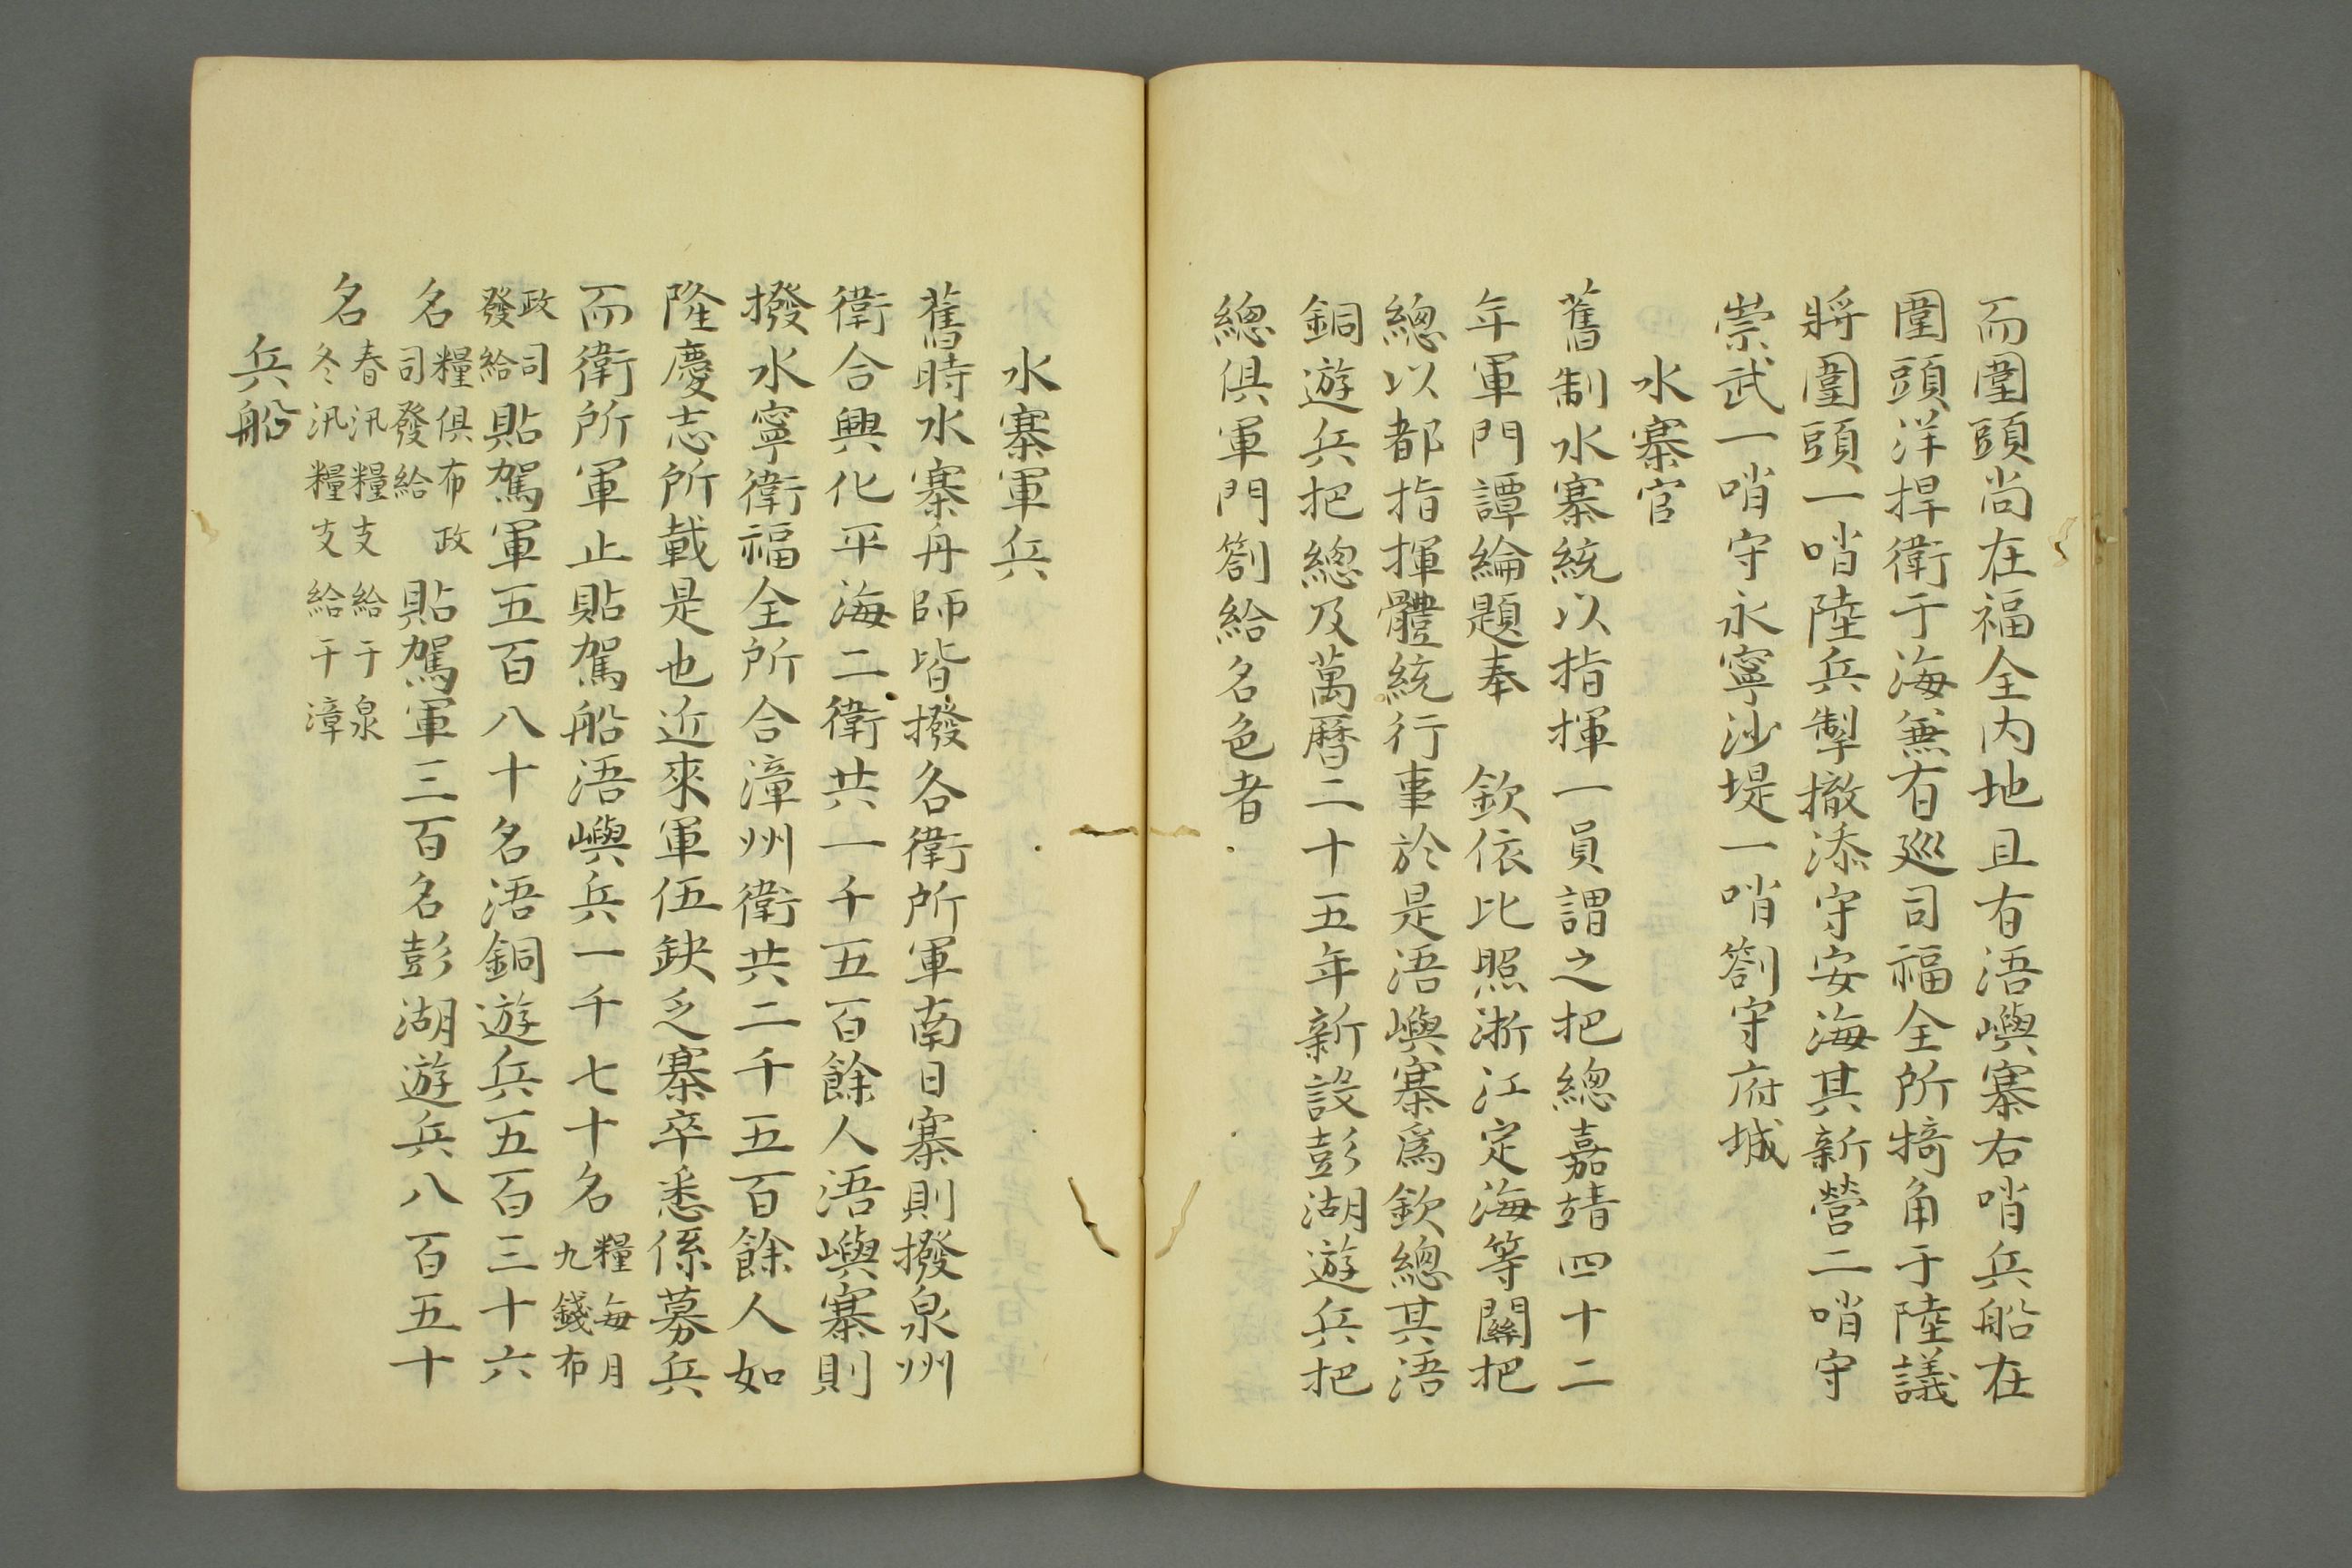 而圍頭尚在福全内地且有浯嶼寨右哨兵船在
圍頭洋捍衛于海無有廵司福全所犄角于陸議
將圍頭一哨陸兵掣撤添守安海其新營二哨守
崇武一哨守永寧沙堤一哨劄守府城
水寨官
舊制水寨統以指揮一員謂之把總嘉靖四十二
年軍門譚綸題奉　欽依比照浙江定海等關把
總以都指揮體統行事於是浯嶼寨爲欽總其浯
銅遊兵把總及萬曆二十五年新設彭湖遊兵把
總俱軍門劄給名色者
水寨軍兵
舊時水寨舟師皆撥各衛所軍南日寨則撥泉州
衛合興化平海二衛共一千五百餘人浯嶼寨則
撥水寧衛福全所合漳州衛共二千五百餘人如
隆慶志所載是也近來軍伍缺乏寨卒悉係募兵
而衛所軍止貼駕船浯嶼兵一千七十名糧每月九錢布
政司發給貼駕軍五百八十名浯銅遊兵五百三十六
名糧俱布政司發給貼駕軍三百名彭湖遊兵八百五十
名春汛糧支給于泉冬汛糧支給于漳
兵船